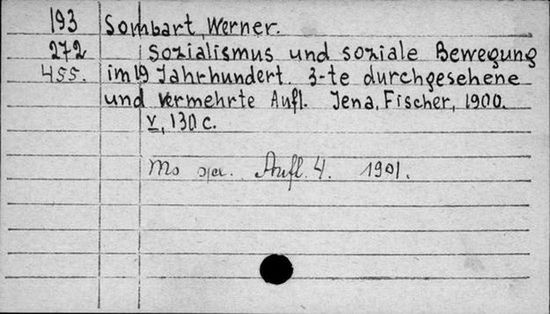 193 Sombart, Werner.
272 Sozialismus und soziale Bewegung
455. im 19 Jahrhundert. 3-te durchgesehene
und vermehrte Aufl. Jena, Fischer, 1900.
V, 130 c.
Aufl. 4. 1901.